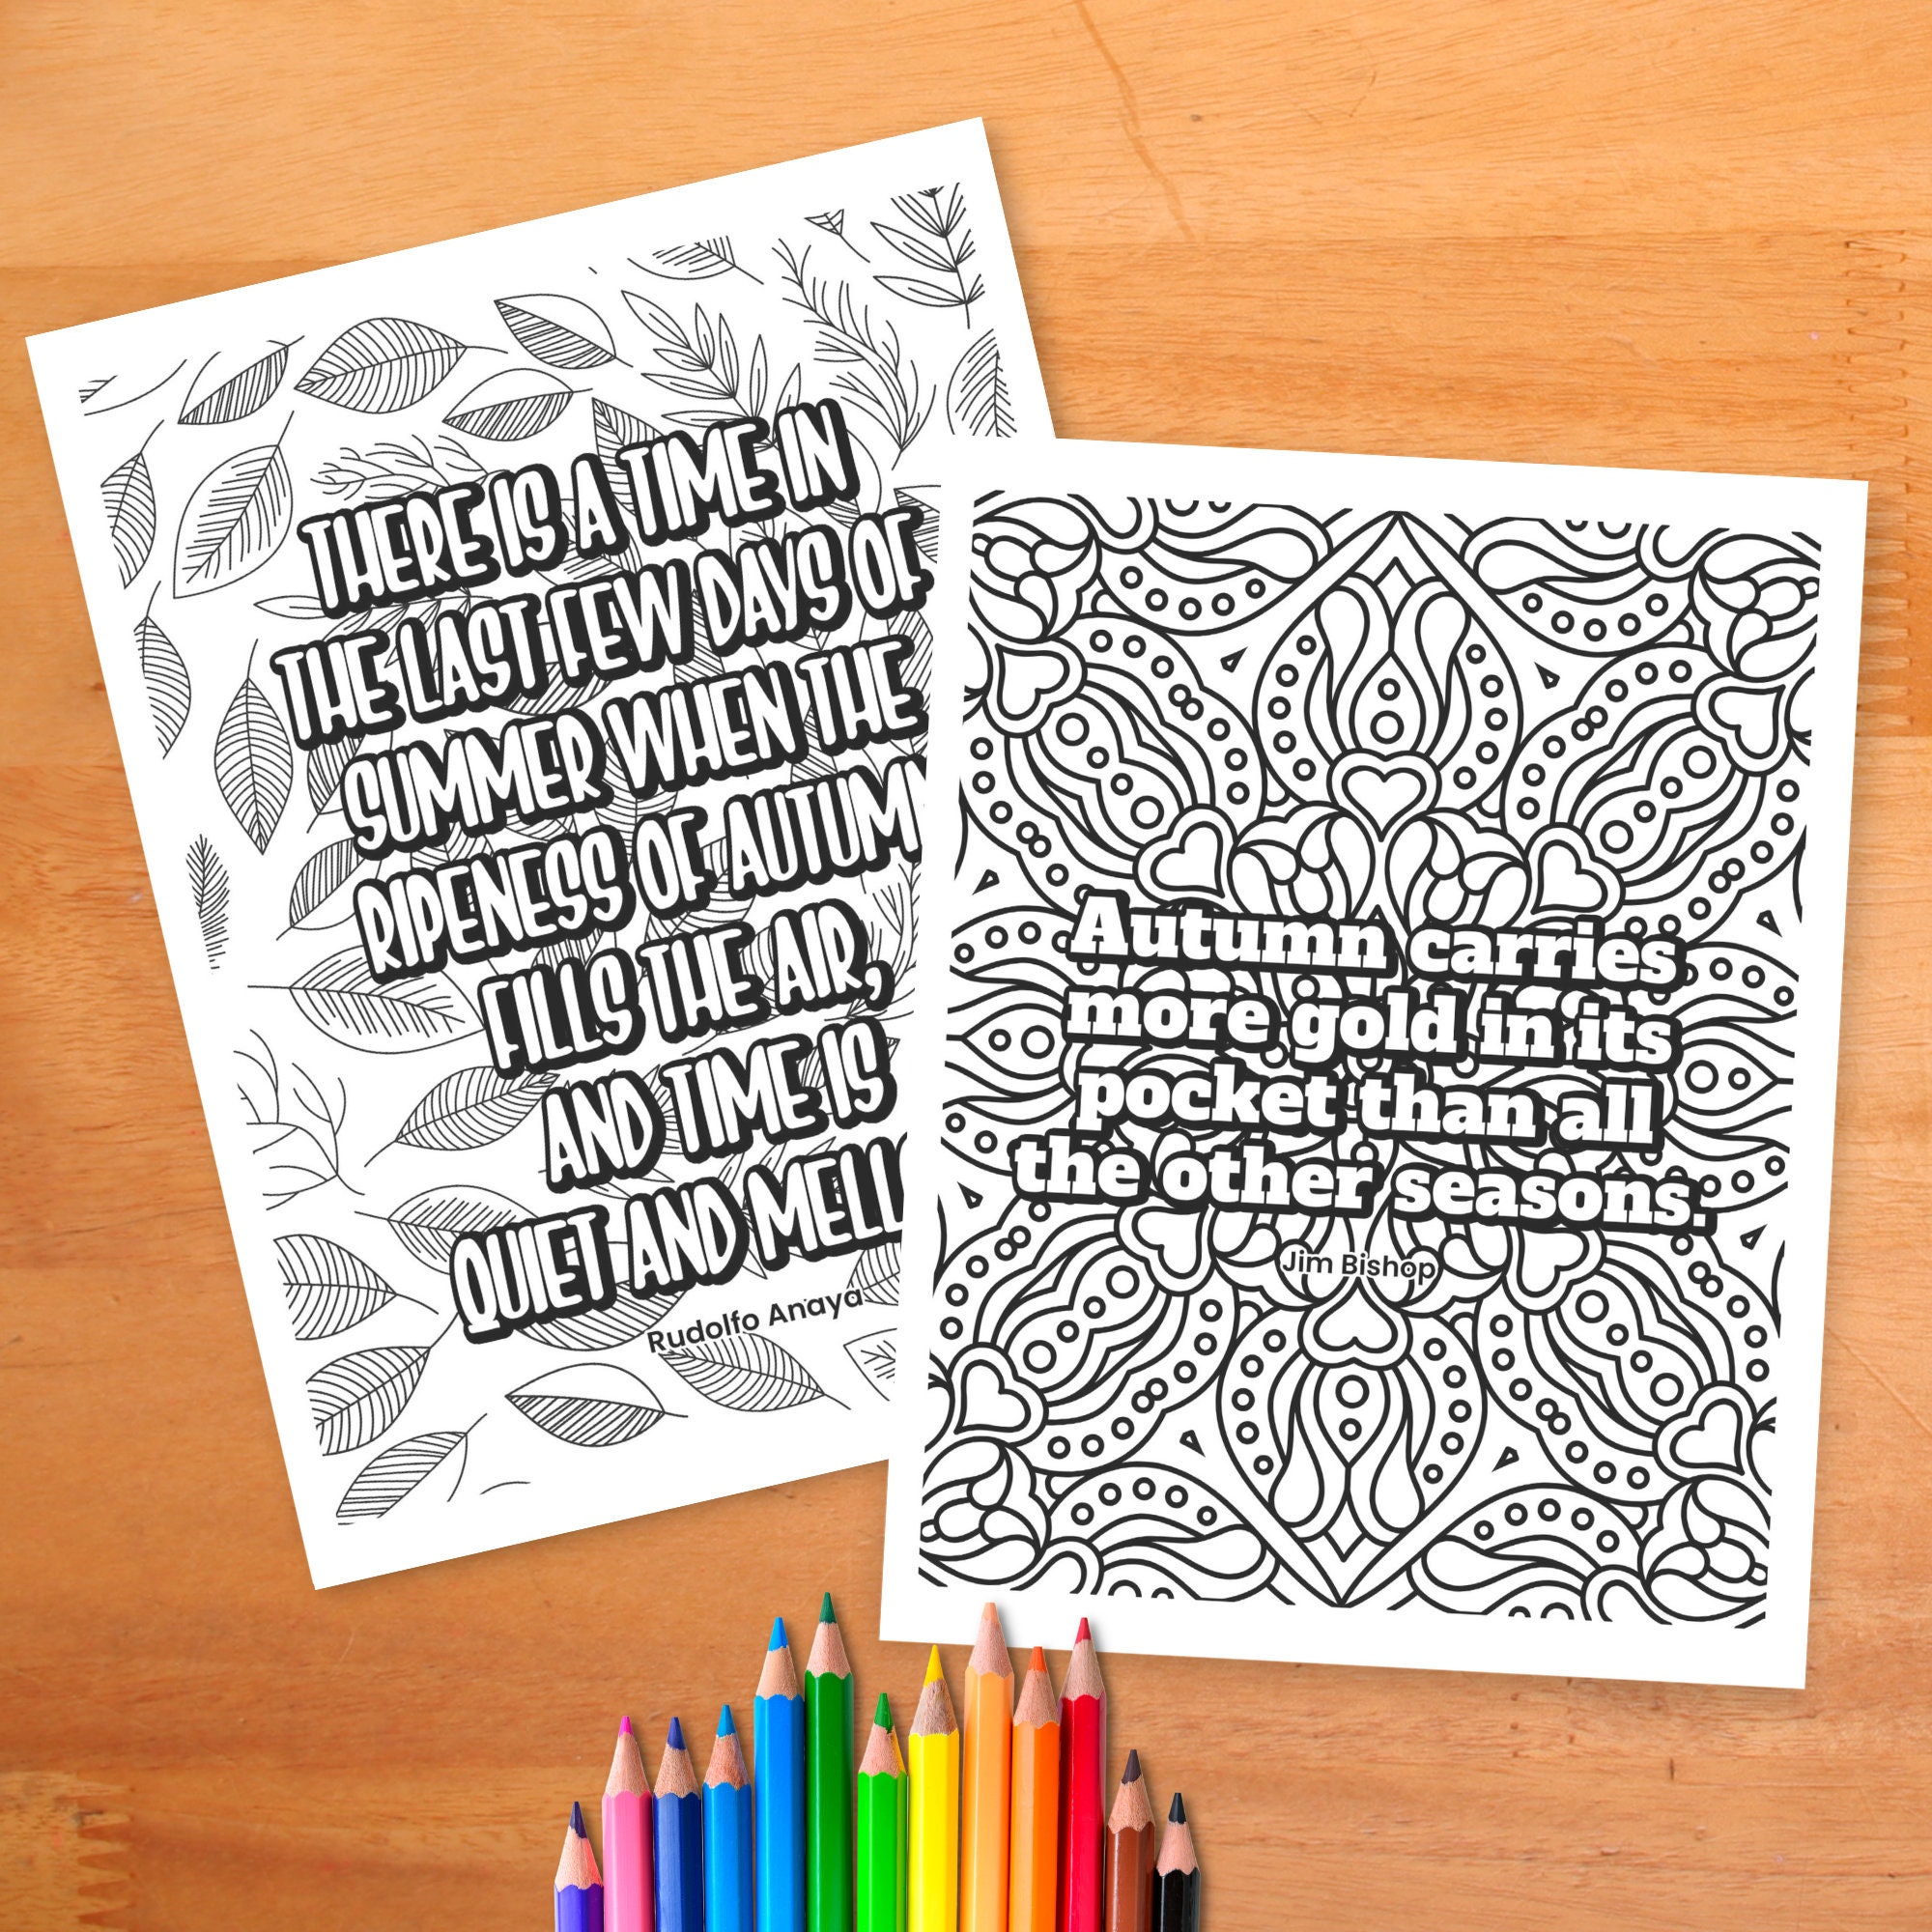 THERE IS A TIME IN
THE LAST FEW DAYS OF
SUMMER WHEN THE
RIPENESS OF AUTUMN
FILLS THE AIR,
AND TIME IS
QUIET AND MELLO
Rudolfo Anaya
Autumn carries
more gold in its
pocket than all
the other seasons.
Jim Bishop